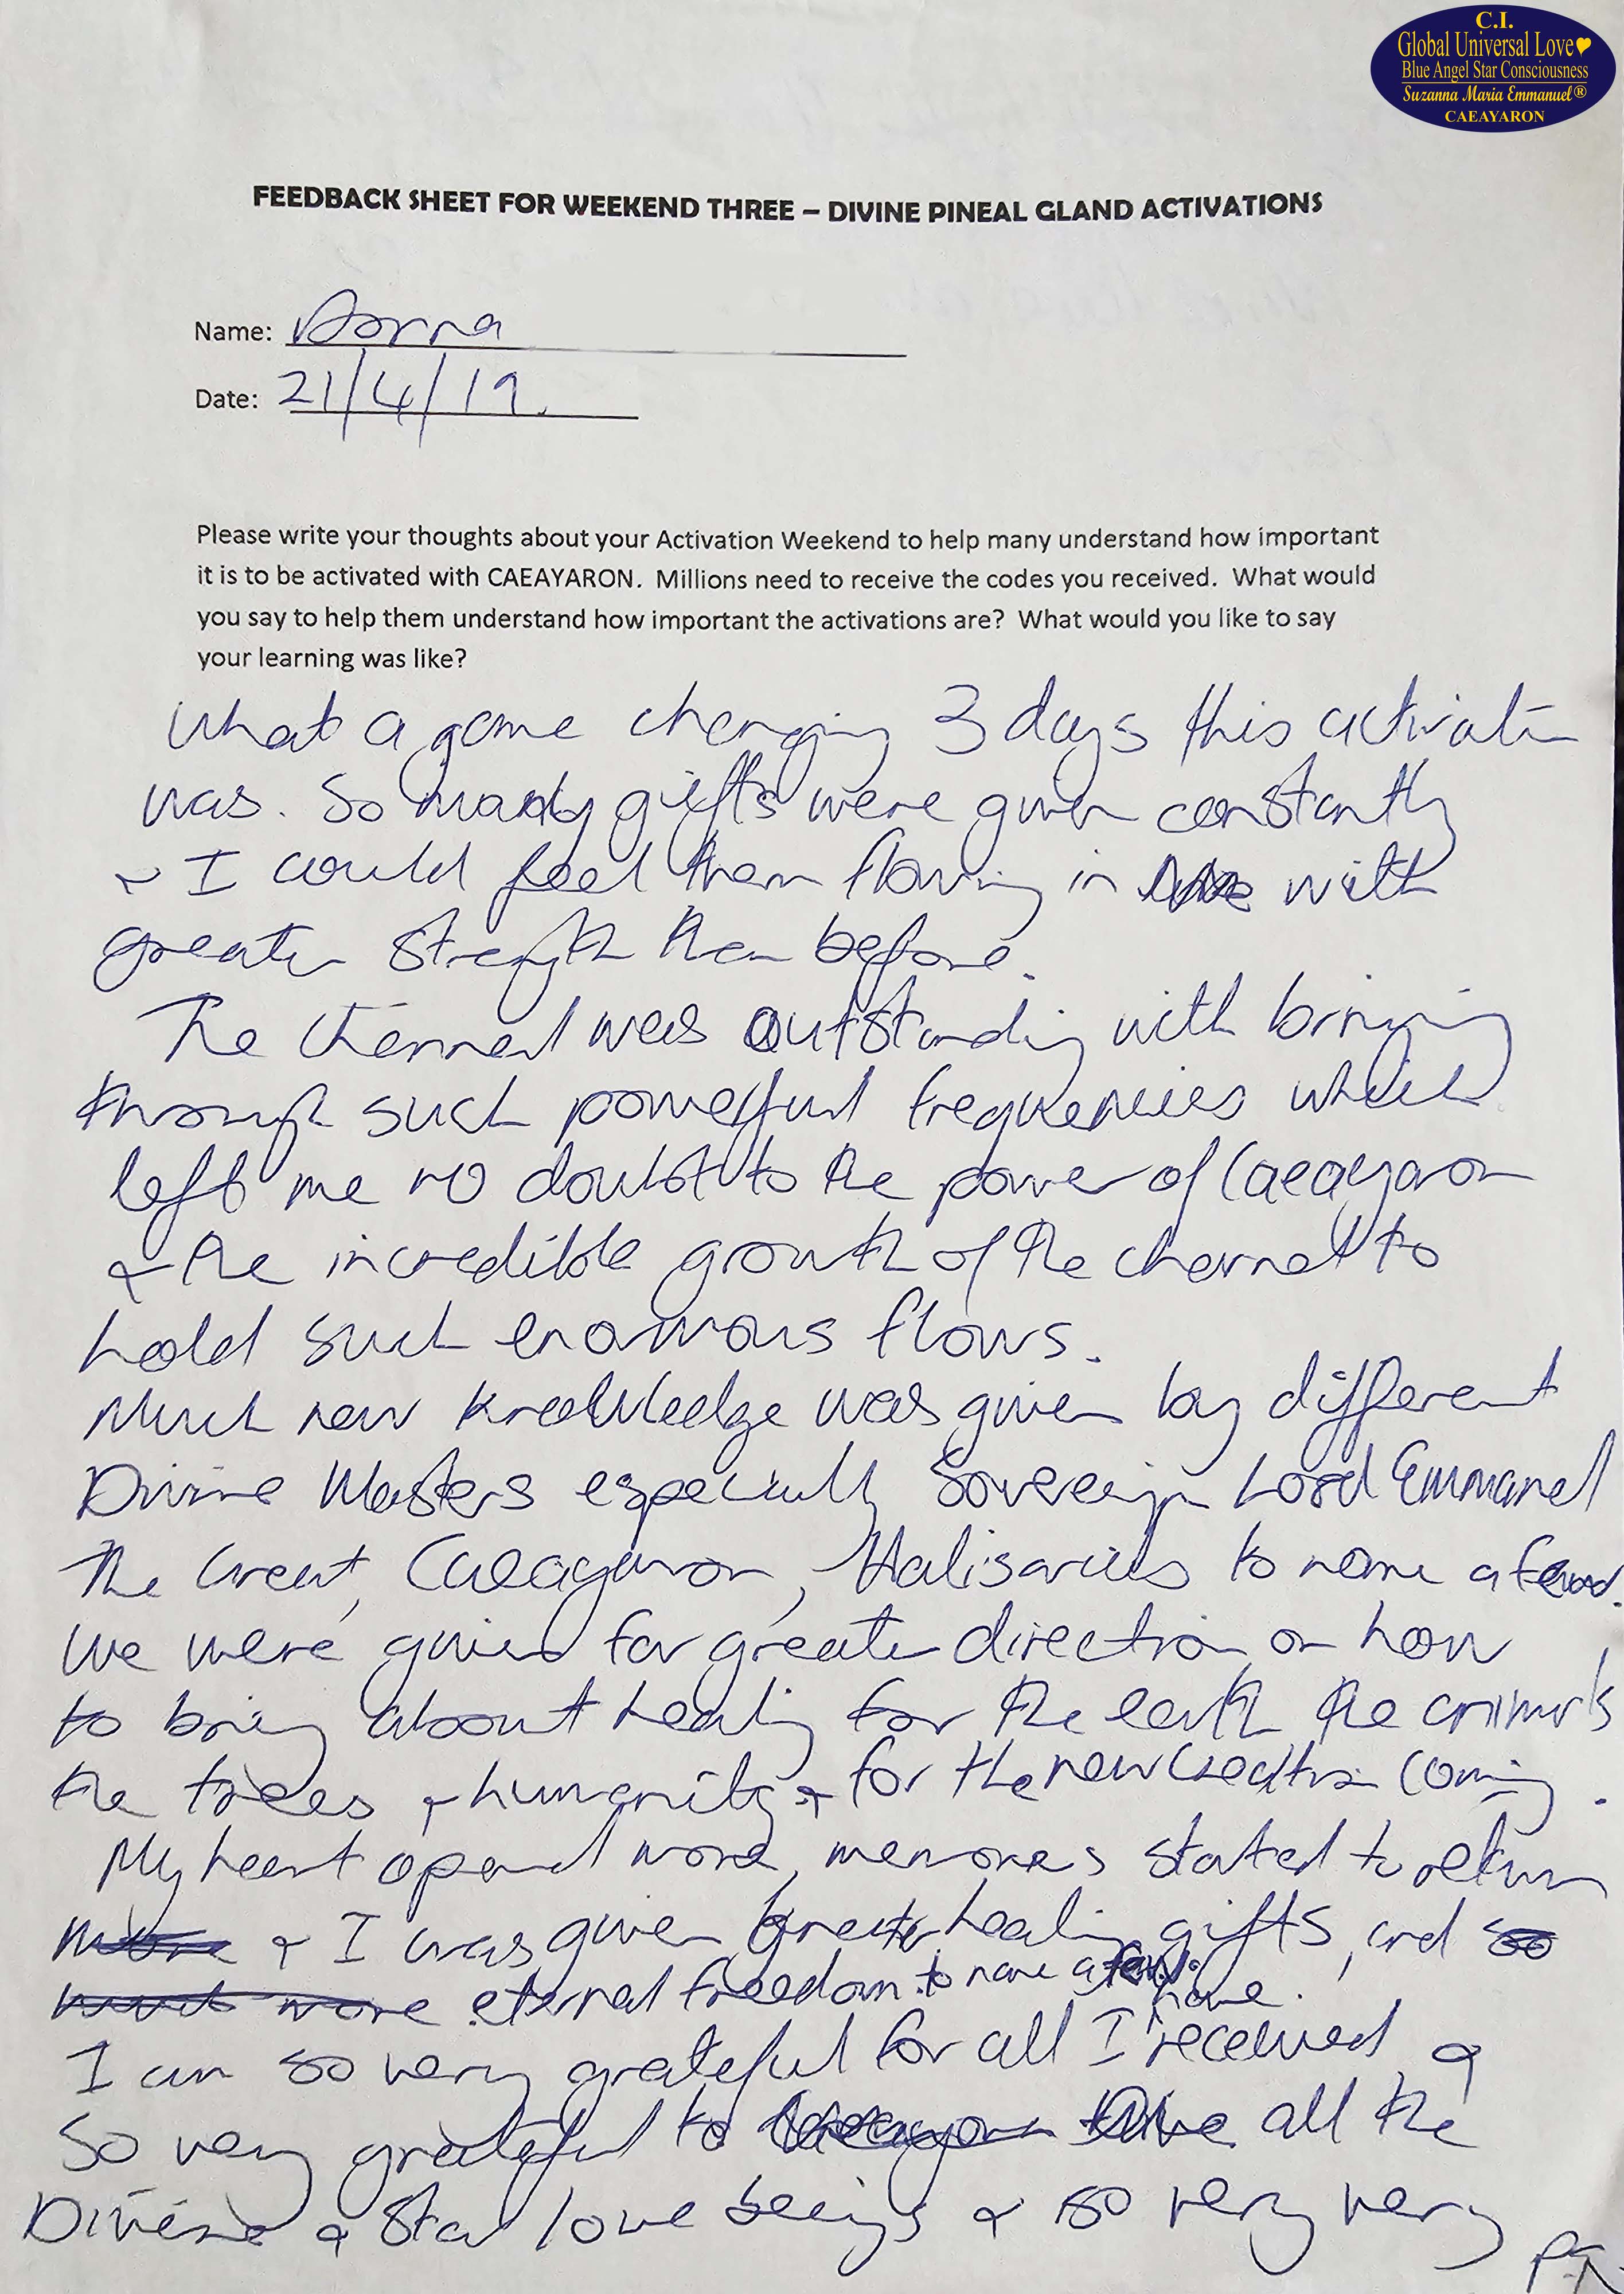 C.I.
Global Universal Love
Blue Angel Star Consciousness
Suzanna Maria Emmanuel®
CAEAYARON
FEEDBACK SHEET FOR WEEKEND THREE – DIVINE PINEAL GLAND ACTIVATIONS
Name: Donna
Date: 21/4/19.
Please write your thoughts about your Activation Weekend to help many understand how important
it is to be activated with CAEAYARON. Millions need to receive the codes you received. What would
you say to help them understand how important the activations are? What would you like to say
your learning was like?
What a game changing 3 days this activation
was. So many gifts were given constantly
& I could feel them flowing in with
greater strength than before.
The channel was outstanding with bringing
through such powerful frequencies which
left me no doubt to the power of Caeayaron
& the incredible growth of the channel to
hold such enormous flows.
Much new knowledge was given by different
Divine Masters especially Sovereign Lord Emmanuel
The Great, Caeayaron, Halisarius to name a few.
We were given far greater direction on how
to bring about healing for the earth the animals
the trees & humanity & for the new Creation coming.
My heart opened more, memories started to return
more & I was given greater healing gifts, and so
much more eternal freedom to name a few.
I am so very grateful for all I have received &
so very grateful to all the
Divine & Star love beings & so very very